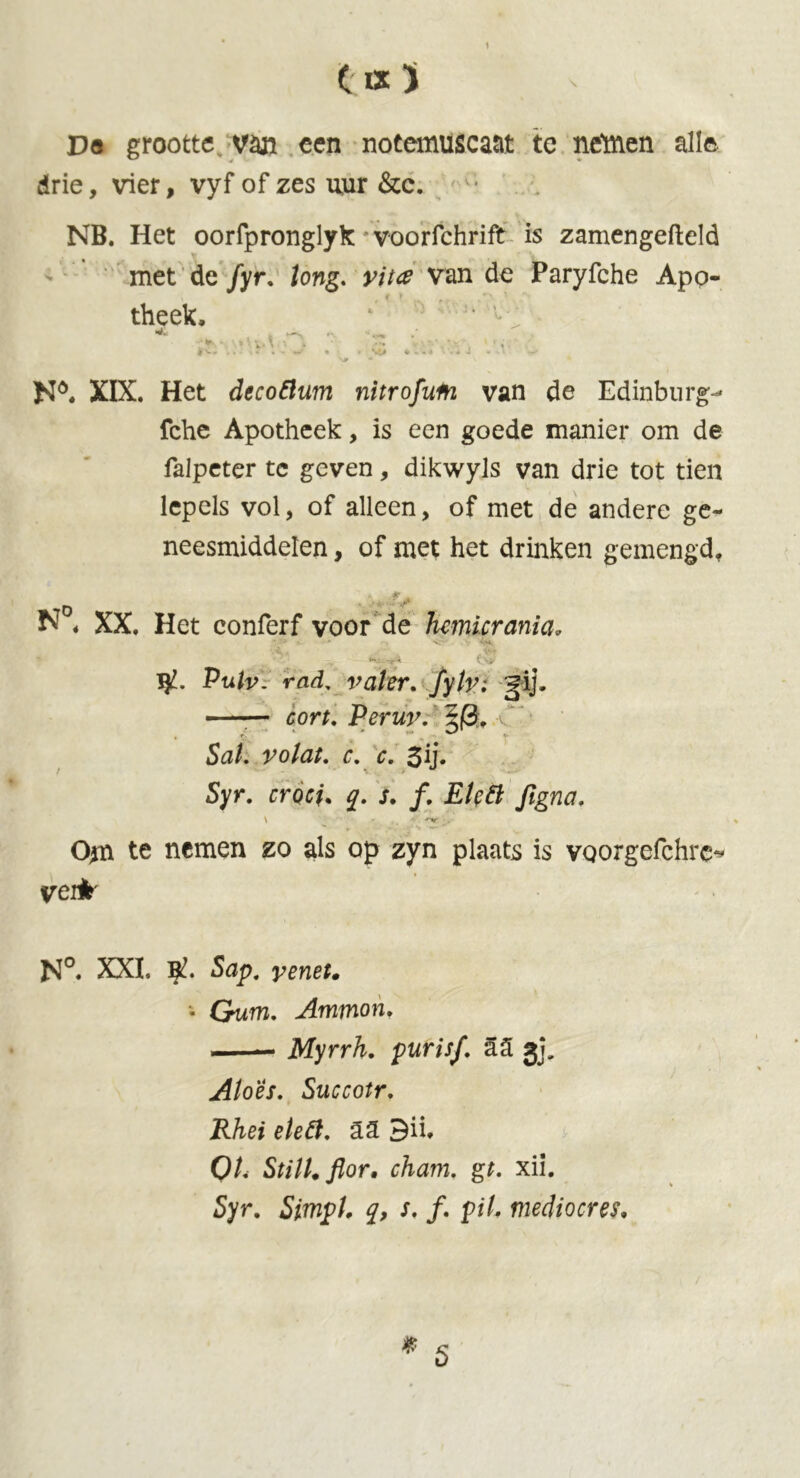 ( IX )
De grootte van een notemuscaat te nemen alle
drie, vier, vyf of zes uur &c.
NB. Het oorſpronglyk voorſchrift is zamengeſteld
met de ſyr. long. vitæ van de Paryſche Apo-
theek.
N°. XIX. Het decoctum nitroſum van de Edinburg-
ſche Apotheek, is een goede manier om de
ſalpeter te geven, dikwyls van drie tot tien
lepels vol, of alleen, of met de andere ge-
neesmiddelen, of met het drinken gemengd,
N°. XX. Het conſerf voor de hemicrania.
℞. Pulv. rad. valer. ſylv. ℥ij.
—— cort. Peruv. ℥β.
Sal. volat. c. c. ʒij.
Syr. croci. q. s. f. Elect ſigna.
Om te nemen zo als op zyn plaats is voorgeſchre-
ven
N°. XXI. ℞. Sap. venet.
Gum. Ammon.
—— Myrrh. purisſ. āā ʒj.
Aloës. Succotr.
Rhei elect. āā ℈ii.
Ol. Still. flor. cham. gt. xii.
Syr. Simpl. q, s. f. pil. mediocres.
* 5